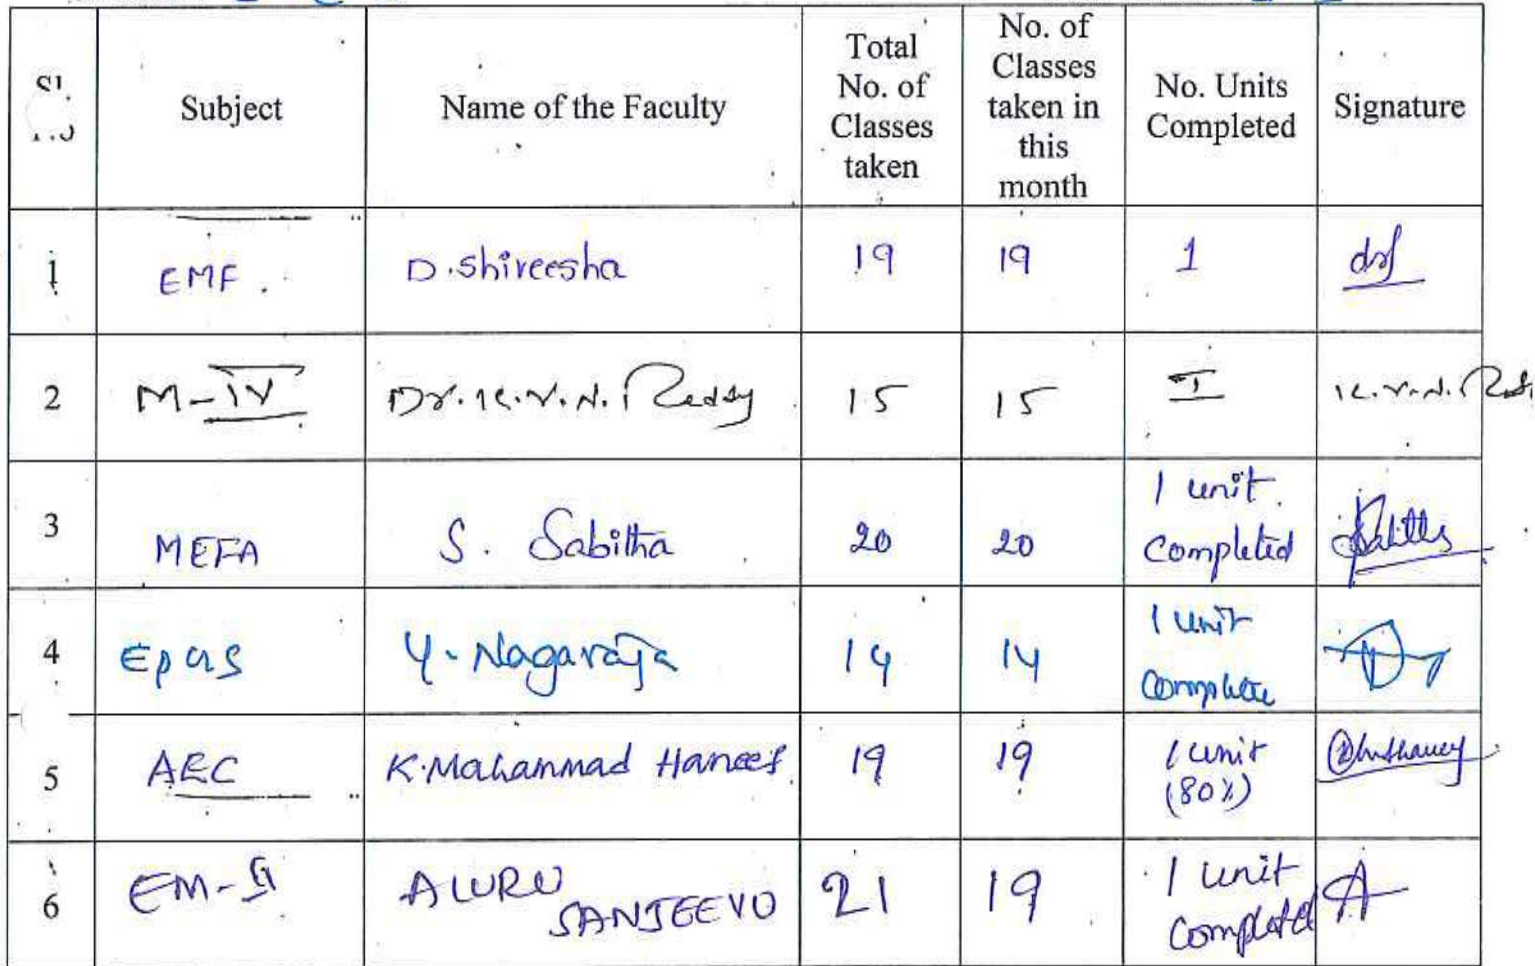 Subject
Name of the Faculty
Total
No. of
Classes
taken
No. of
Classes
taken in
this
month
No. Units
Completed
Signature
1 EMF. D.Shireesha 19 19 1
2 M-IV Dr.K.V.N.Reddy 15 15 I K.V.N.
3 MEFA S. Sabitha 20 20 1 unit.
completed
4 Y. Nagaraja 14 14 1 unit
complete
5 AEC K.Mahammad Haneef 19 19 1 unit
(80%)
6 EM-II ALURU
SANJEEVU 21 19 1 unit
completed